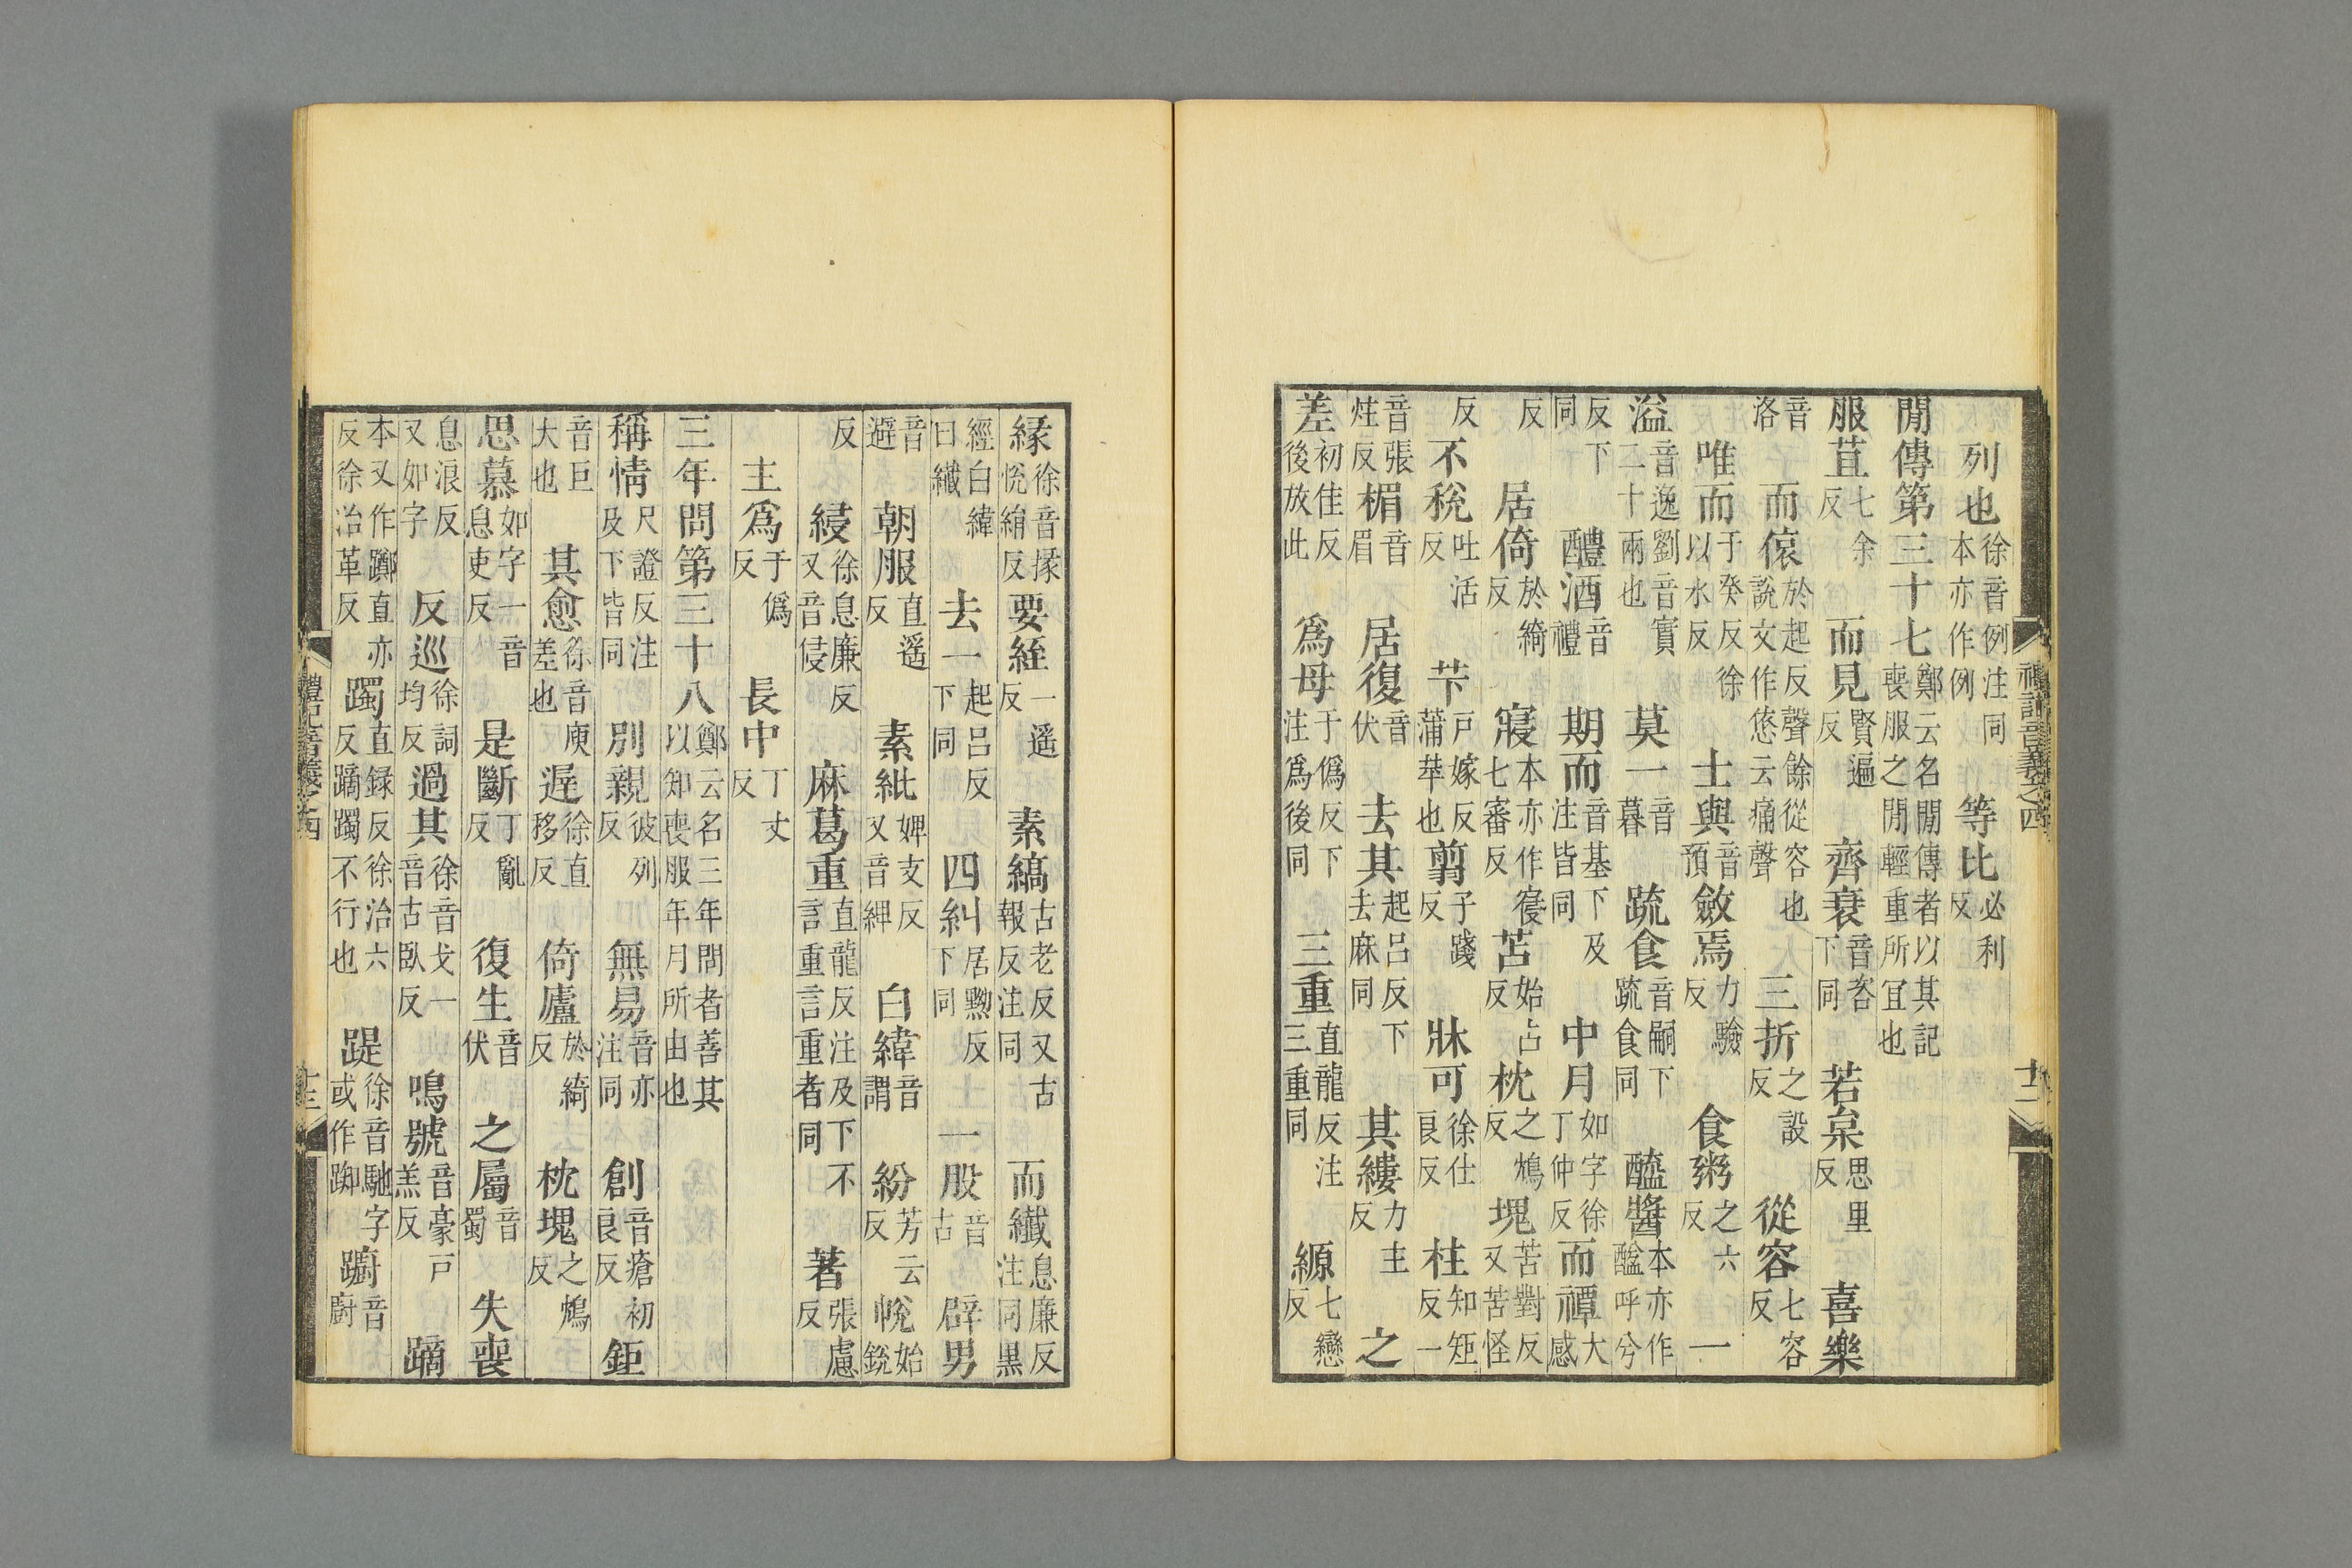 列也徐音例注同本亦作例等比必利反
閒傳第三十七鄭云名閒傳者以其記喪服之閒輕重所宜也
服苴七余反而見賢遍反齊衰音咨下同若枲思里反喜樂
音洛而偯於起反聲餘從容也說文作悠云痛聲三折之設反從容七容反
唯而于癸反徐以水反士與音預斂焉力驗反食粥之六反一
溢音逸劉音實二十兩也莫一音暮疏食音嗣下疏食同醯醬本亦作醓呼兮
反下同醴酒音禮期而音基下及注皆同中月如字徐丁仲反而禫大感
反居倚於綺反寢本亦作寑七審反苫始占反枕之鴆反塊苦對反又苦怪
反不稅吐活反苄戶嫁反蒲苹也翦子踐反牀可徐仕良反柱知矩反一
音張炷反楣音眉居復音伏去其起呂反下去麻同其縷力主反之
差初佳反後放此爲母于僞反下注爲後同三重直龍反注三重同縓七戀反
禮記音義之四
十二
緣徐音掾悅絹反要絰一遙反素縞古老反又古報反注同而纖息廉反注同黑
經白緯曰纖去一起呂反下同四糾居黝反下同一股音古辟男
音避朝服直遙反素紕婢支反又音紕白緯音謂紛芳云反帨始銳
反綅徐息廉反又音侵麻葛重直龍反注及下不言重言重者同著張慮反
主爲于僞反長中丁丈反
三年問第三十八鄭云名三年問者善其以知喪服年月所由也
稱情尺證反注及下皆同別親彼列反無易音亦注同創音瘡初良反鉅
音巨大也其愈徐音庾差也遲徐直移反倚廬於綺反枕塊之鴆反
思慕如字一音息吏反是斷丁亂反復生音伏之屬音蜀失喪
息浪反又如字反巡徐詞均反過其徐音戈一音古臥反鳴號音豪戶羔反蹢
本又作躑直亦反徐治革反躅直録反徐治六反蹢躅不行也踶徐音馳字或作踟躕音廚
禮記音義之四
十三